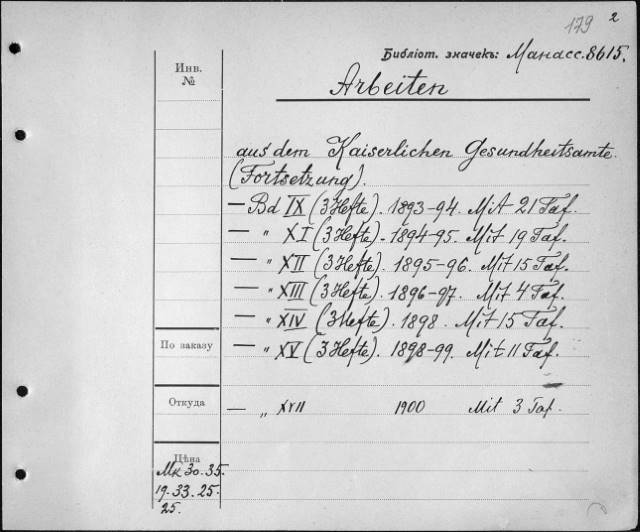 179 2
Библіот. значекъ: Манасс. 8615.
Инв.
№
Arbeiten
aus dem Kaiserlichen Gesundheitsamte.
(Fortsetzung).
— Bd IX (3 Hefte). 1893-94. Mit 21 Taf.
— „ XI (3 Hefte). 1894-95. Mit 19 Taf.
— „ XII (3 Hefte). 1895-96. Mit 15 Taf.
— „ XIII (3 Hefte). 1896-97. Mit 4 Taf.
— „ XIV (3 Hefte). 1898. Mit 15 Taf.
По заказу
— „ XV (3 Hefte). 1898-99. Mit 11 Taf.
Откуда
— „ XVII 1900 Mit 3 Taf.
Цѣна
Мк 30. 35.
19. 33. 25.
25.